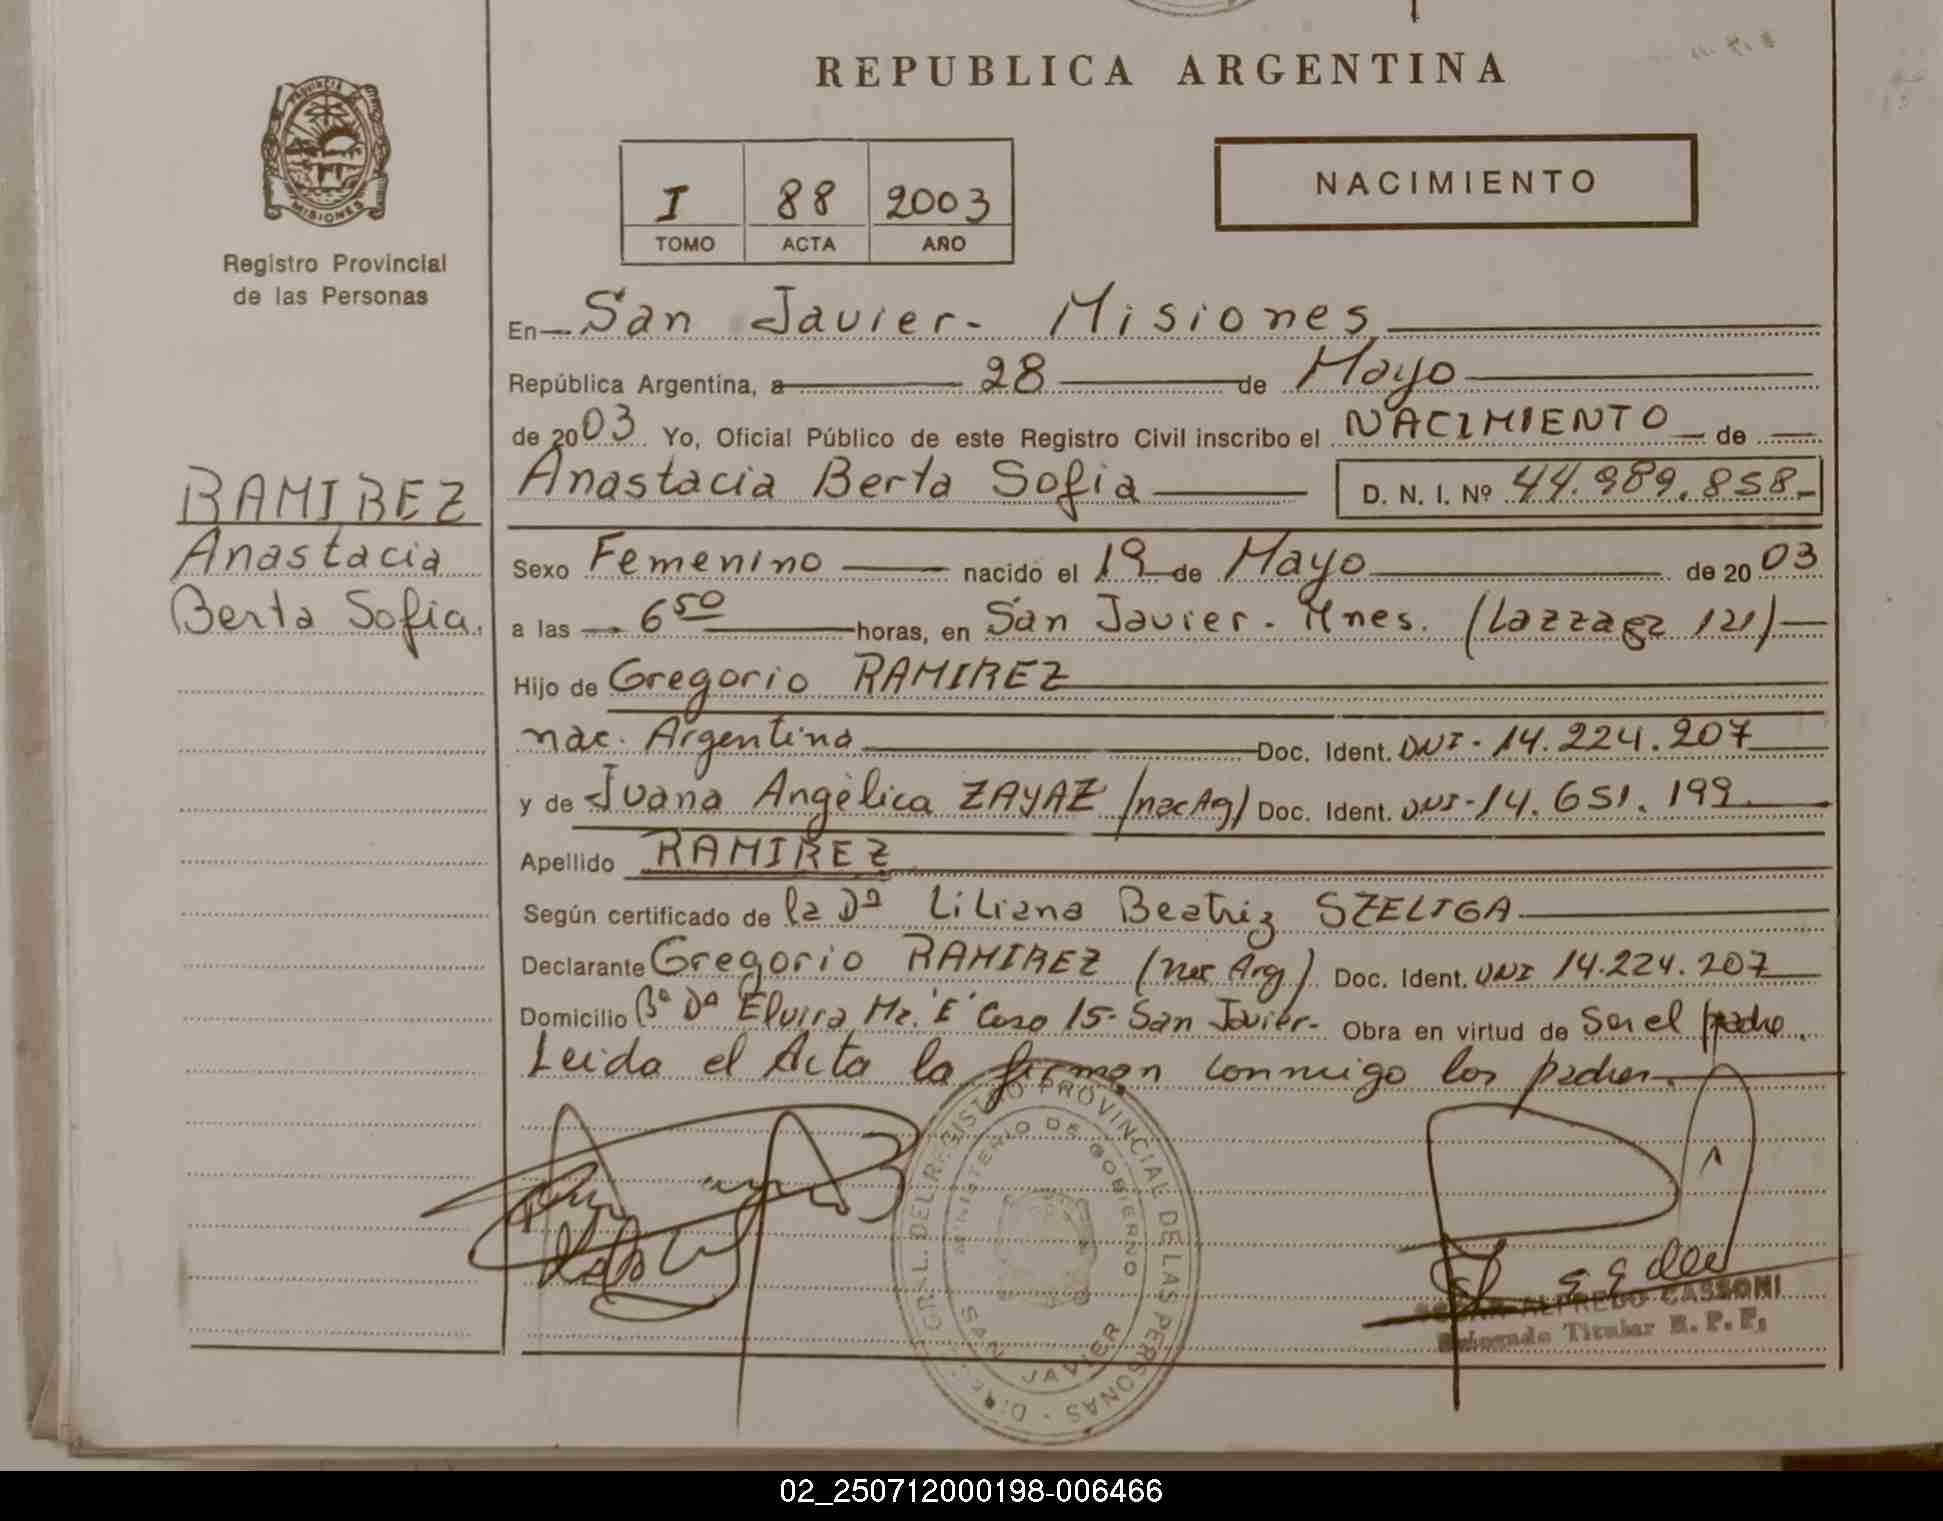 REPUBLICA ARGENTINA
PROVINCIA DE
MISIONES
Registro Provincial
de las Personas
I 88 2003
TOMO ACTA AÑO
NACIMIENTO
En San Javier - Misiones
República Argentina, a 28 de Mayo
de 2003 Yo, Oficial Público de este Registro Civil inscribo el NACIMIENTO de
RAMIREZ
Anastacia
Berta Sofia.
Anastacia Berta Sofia D. N. I. Nº 44.989.858.-
Sexo Femenino nacido el 19 de Mayo de 2003
a las 6 50 horas, en San Javier - Mnes. (Lazzaga 121)
Hijo de Gregorio RAMIREZ
nac. Argentina Doc. Ident. DNI - 14.224.207
y de Juana Angélica ZAYAZ (nac Ag) Doc. Ident. DNI - 14.651.199
Apellido RAMIREZ
Según certificado de la Dª Liliana Beatriz SZELIGA
Declarante Gregorio RAMIREZ (nac Arg) Doc. Ident. DNI 14.224.207
Domicilio Bº Dª Elvira Mz. "E" Casa 15 - San Javier - Obra en virtud de Ser el padre.
Leida el Acta la firman conmigo los padres.
DIREC. GRAL. DEL REGISTRO PROVINCIAL DE LAS PERSONAS
MINISTERIO DE GOBIERNO
SAN JAVIER
ALFREDO CASSONI
Delegado Titular R. P. P.
02_250712000198-006466